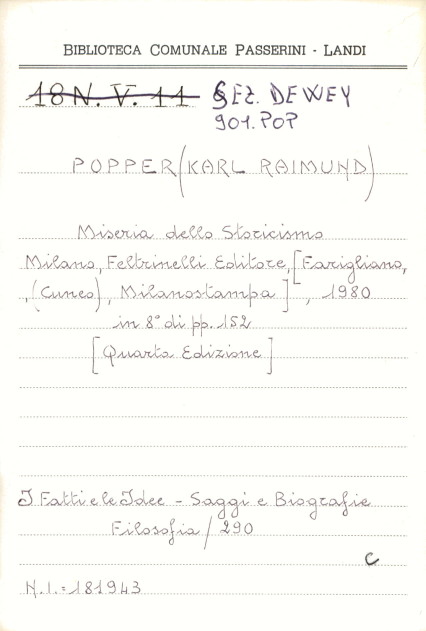 BIBLIOTECA COMUNALE PASSERINI - LANDI
18 N. V. 11 SEZ. DEWEY
901.POP
POPPER (KARL RAIMUND)
Miseria dello Storicismo
Milano, Feltrinelli Editore, [Farigliano,
, (Cuneo), Milanostampa], 1980
in 8° di pp. 152
[Quarta Edizione]
I Fatti e le Idee - Saggi e Biografie
Filosofia / 290
C
N.I.=181943